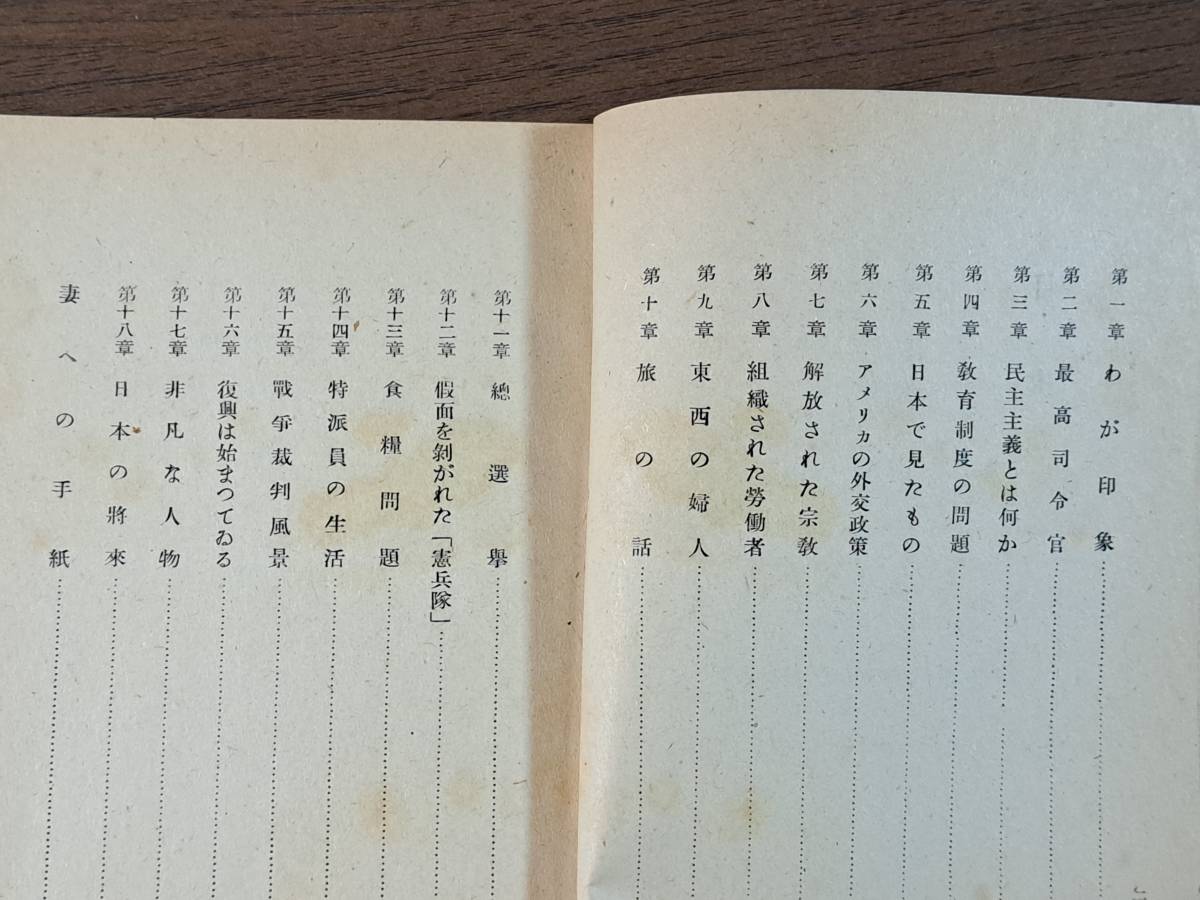 第一章 わが印象
第二章 最高司令官
第三章 民主主義とは何か
第四章 教育制度の問題
第五章 日本で見たもの
第六章 アメリカの外交政策
第七章 解放された宗教
第八章 組織された勞働者
第九章 東西の婦人
第十章 旅の話
第十一章 總選擧
第十二章 假面を剝がれた「憲兵隊」
第十三章 食糧問題
第十四章 特派員の生活
第十五章 戰爭裁判風景
第十六章 復興は始まつてゐる
第十七章 非凡な人物
第十八章 日本の將來
妻への手紙